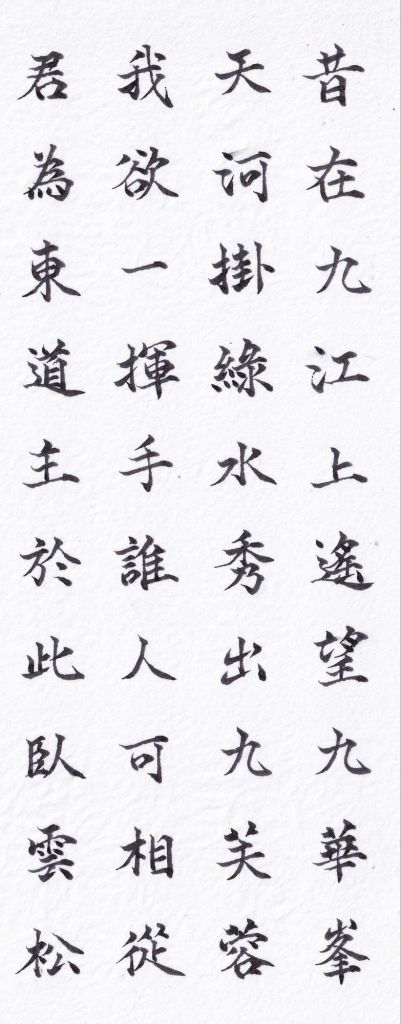 昔在九江上遙望九華峯
天河掛綠水秀出九芙蓉
我欲一揮手誰人可相從
君為東道主於此臥雲松